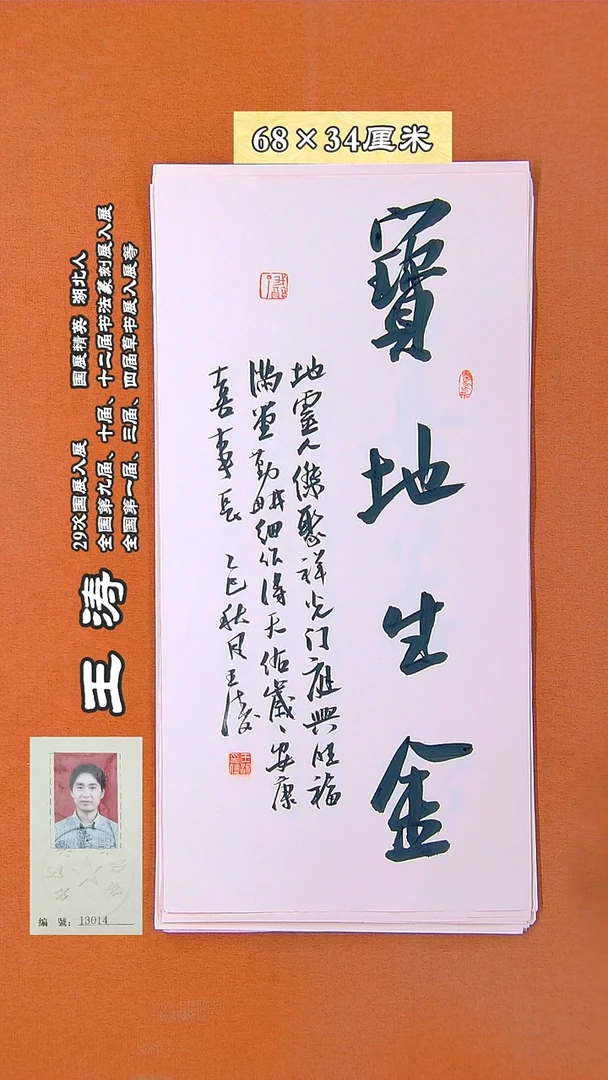 68×34厘米
寶地生金
地靈人傑聚祥光门庭興旺福
滿堂勤耕细作得天佑歲歲安康
喜事長 乙巳秋月王涛
王涛
29次国展入展 国展精英 湖北人
全国第九届、十届、十二届书法篆刻展入展
全国第一届、三届、四届草书展入展等
編 號：13014